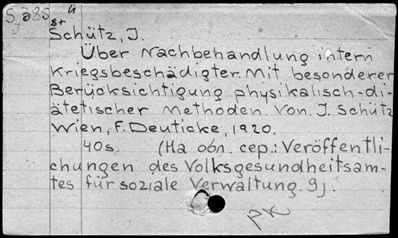 S 385 й
J 8+
Schütz, J.
Über Nachbehandlung intern
Kriegsbeschädigter. Mit besonderer
Berücksichtigung physikalisch-di-
ätetischer Methoden. Von. J. Schütz
Wien, F. Deuticke, 1920.
40s. (На обл. сер.: Veröffentli-
chungen des Volksgesundheitsam-
tes für soziale Verwaltung. 9).
РК